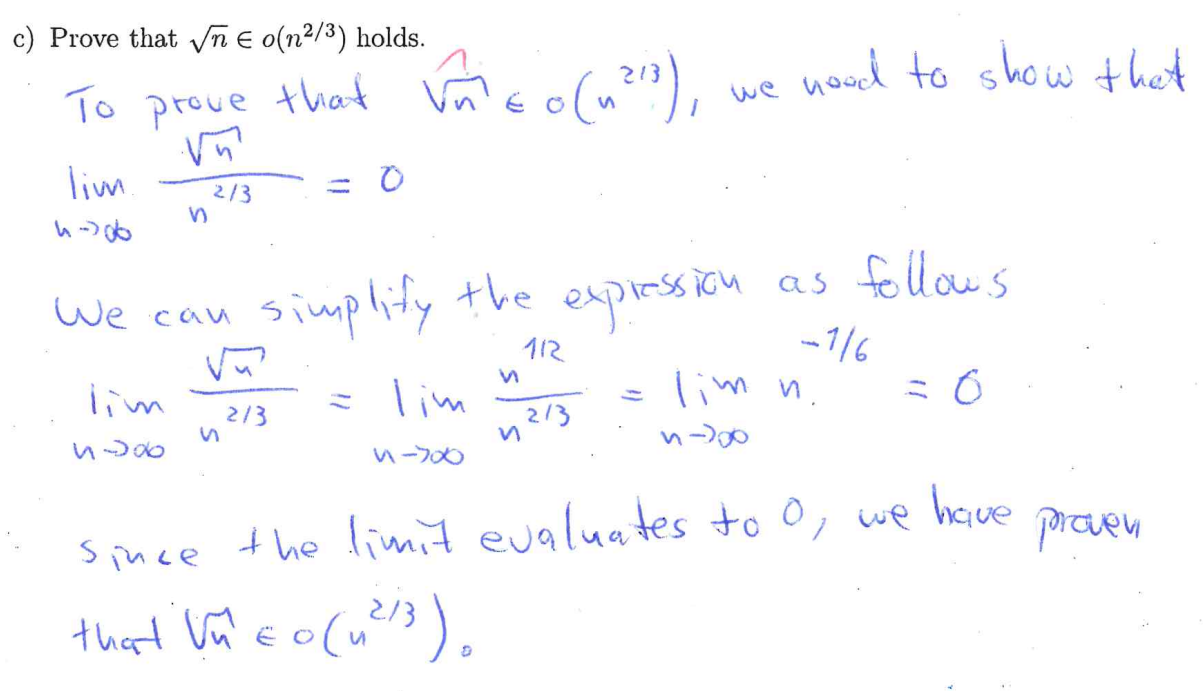 c) Prove that √n ∈ o(n^{2/3}) holds.
To prove that √n ∈ o(n^{2/3}), we need to show that
lim_{n→∞} √n / n^{2/3} = 0
We can simplify the expression as follows
lim_{n→∞} √n / n^{2/3} = lim_{n→∞} n^{1/2} / n^{2/3} = lim_{n→∞} n^{-1/6} = 0
since the limit evaluates to 0, we have proven
that √n ∈ o(n^{2/3}).